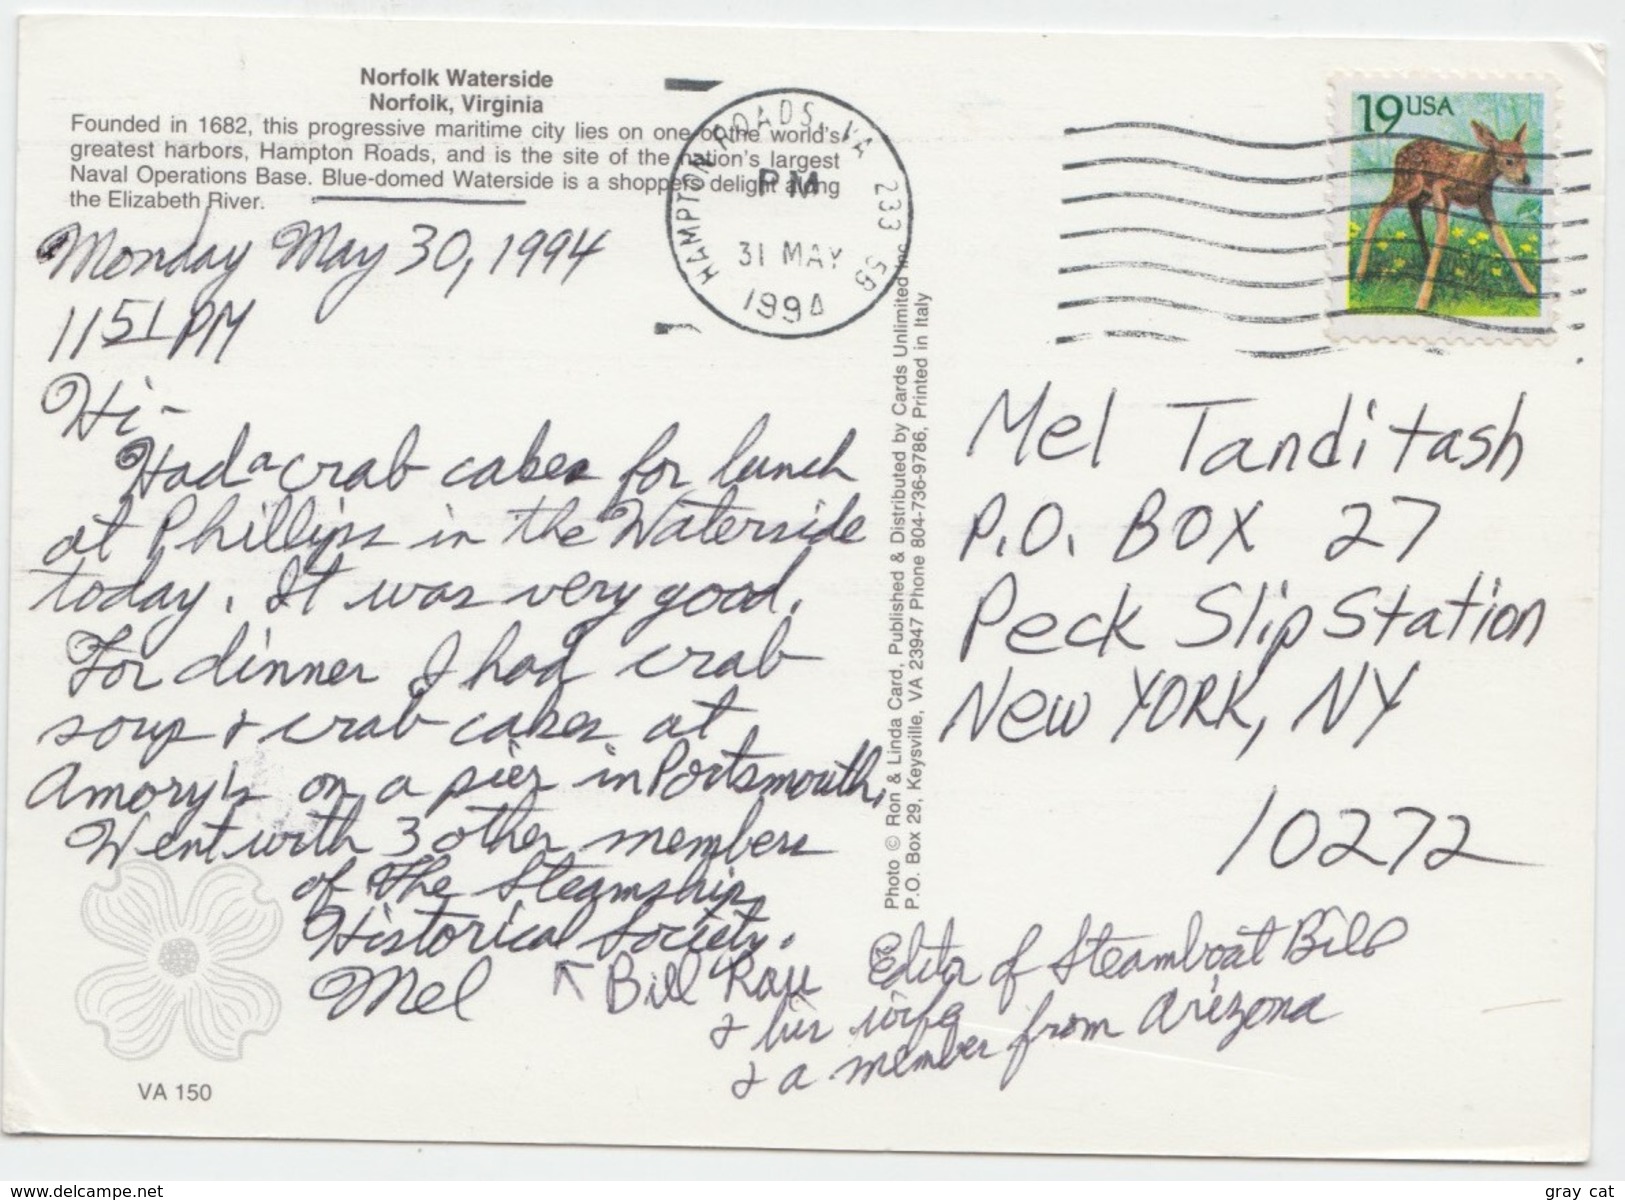 Norfolk Waterside
Norfolk, Virginia
Founded in 1682, this progressive maritime city lies on one of the world's
greatest harbors, Hampton Roads, and is the site of the nation's largest
Naval Operations Base. Blue-domed Waterside is a shoppers delight along
the Elizabeth River.
Monday May 30, 1994
1151 PM
Hi-
Had a crab cakes for lunch
at Phillips in the Waterside
today. It was very good.
For dinner I had crab
soup & crab cakes at
Amory's on a pier in Portsmouth.
Went with 3 other members
of the Steamship
Historical Society.
Mel
↖ Bill Rau Editor of Steamboat Bill
& his wife
& a member from Arizona
VA 150
HAMPTON ROADS, VA 233 5B
PM
31 MAY
1994
19 USA
Photo © Ron & Linda Card, Published & Distributed by Cards Unlimited Inc.
P.O. Box 29, Keysville, VA 23947 Phone 804-736-9786, Printed in Italy
Mel Tanditash
P.O. BOX 27
Peck Slip Station
New YORK, NY
10272
www.delcampe.net
gray cat